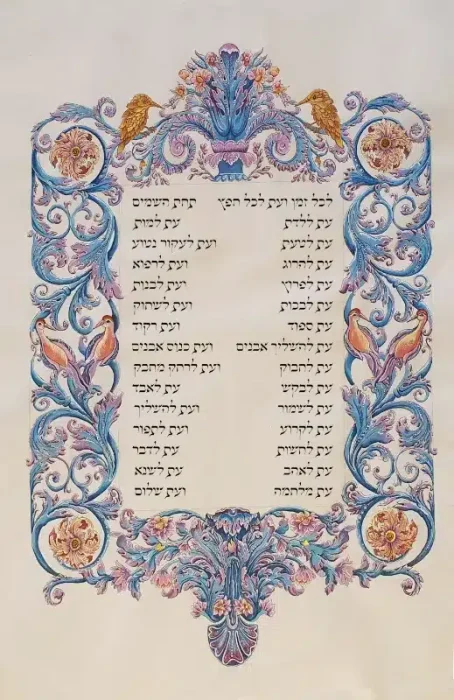 לכל זמן ועת לכל חפץ תחת השמים
עת ללדת עת למות
עת לטעת ועת לעקור נטוע
עת להרוג ועת לרפוא
עת לפרוץ ועת לבנות
עת לבכות ועת לשחוק
עת ספוד ועת רקוד
עת להשליך אבנים ועת כנוס אבנים
עת לחבוק ועת לרחק מחבק
עת לבקש עת לאבד
עת לשמור ועת להשליך
עת לקרוע ועת לתפור
עת לחשות עת לדבר
עת לאהב עת לשנא
עת מלחמה ועת שלום